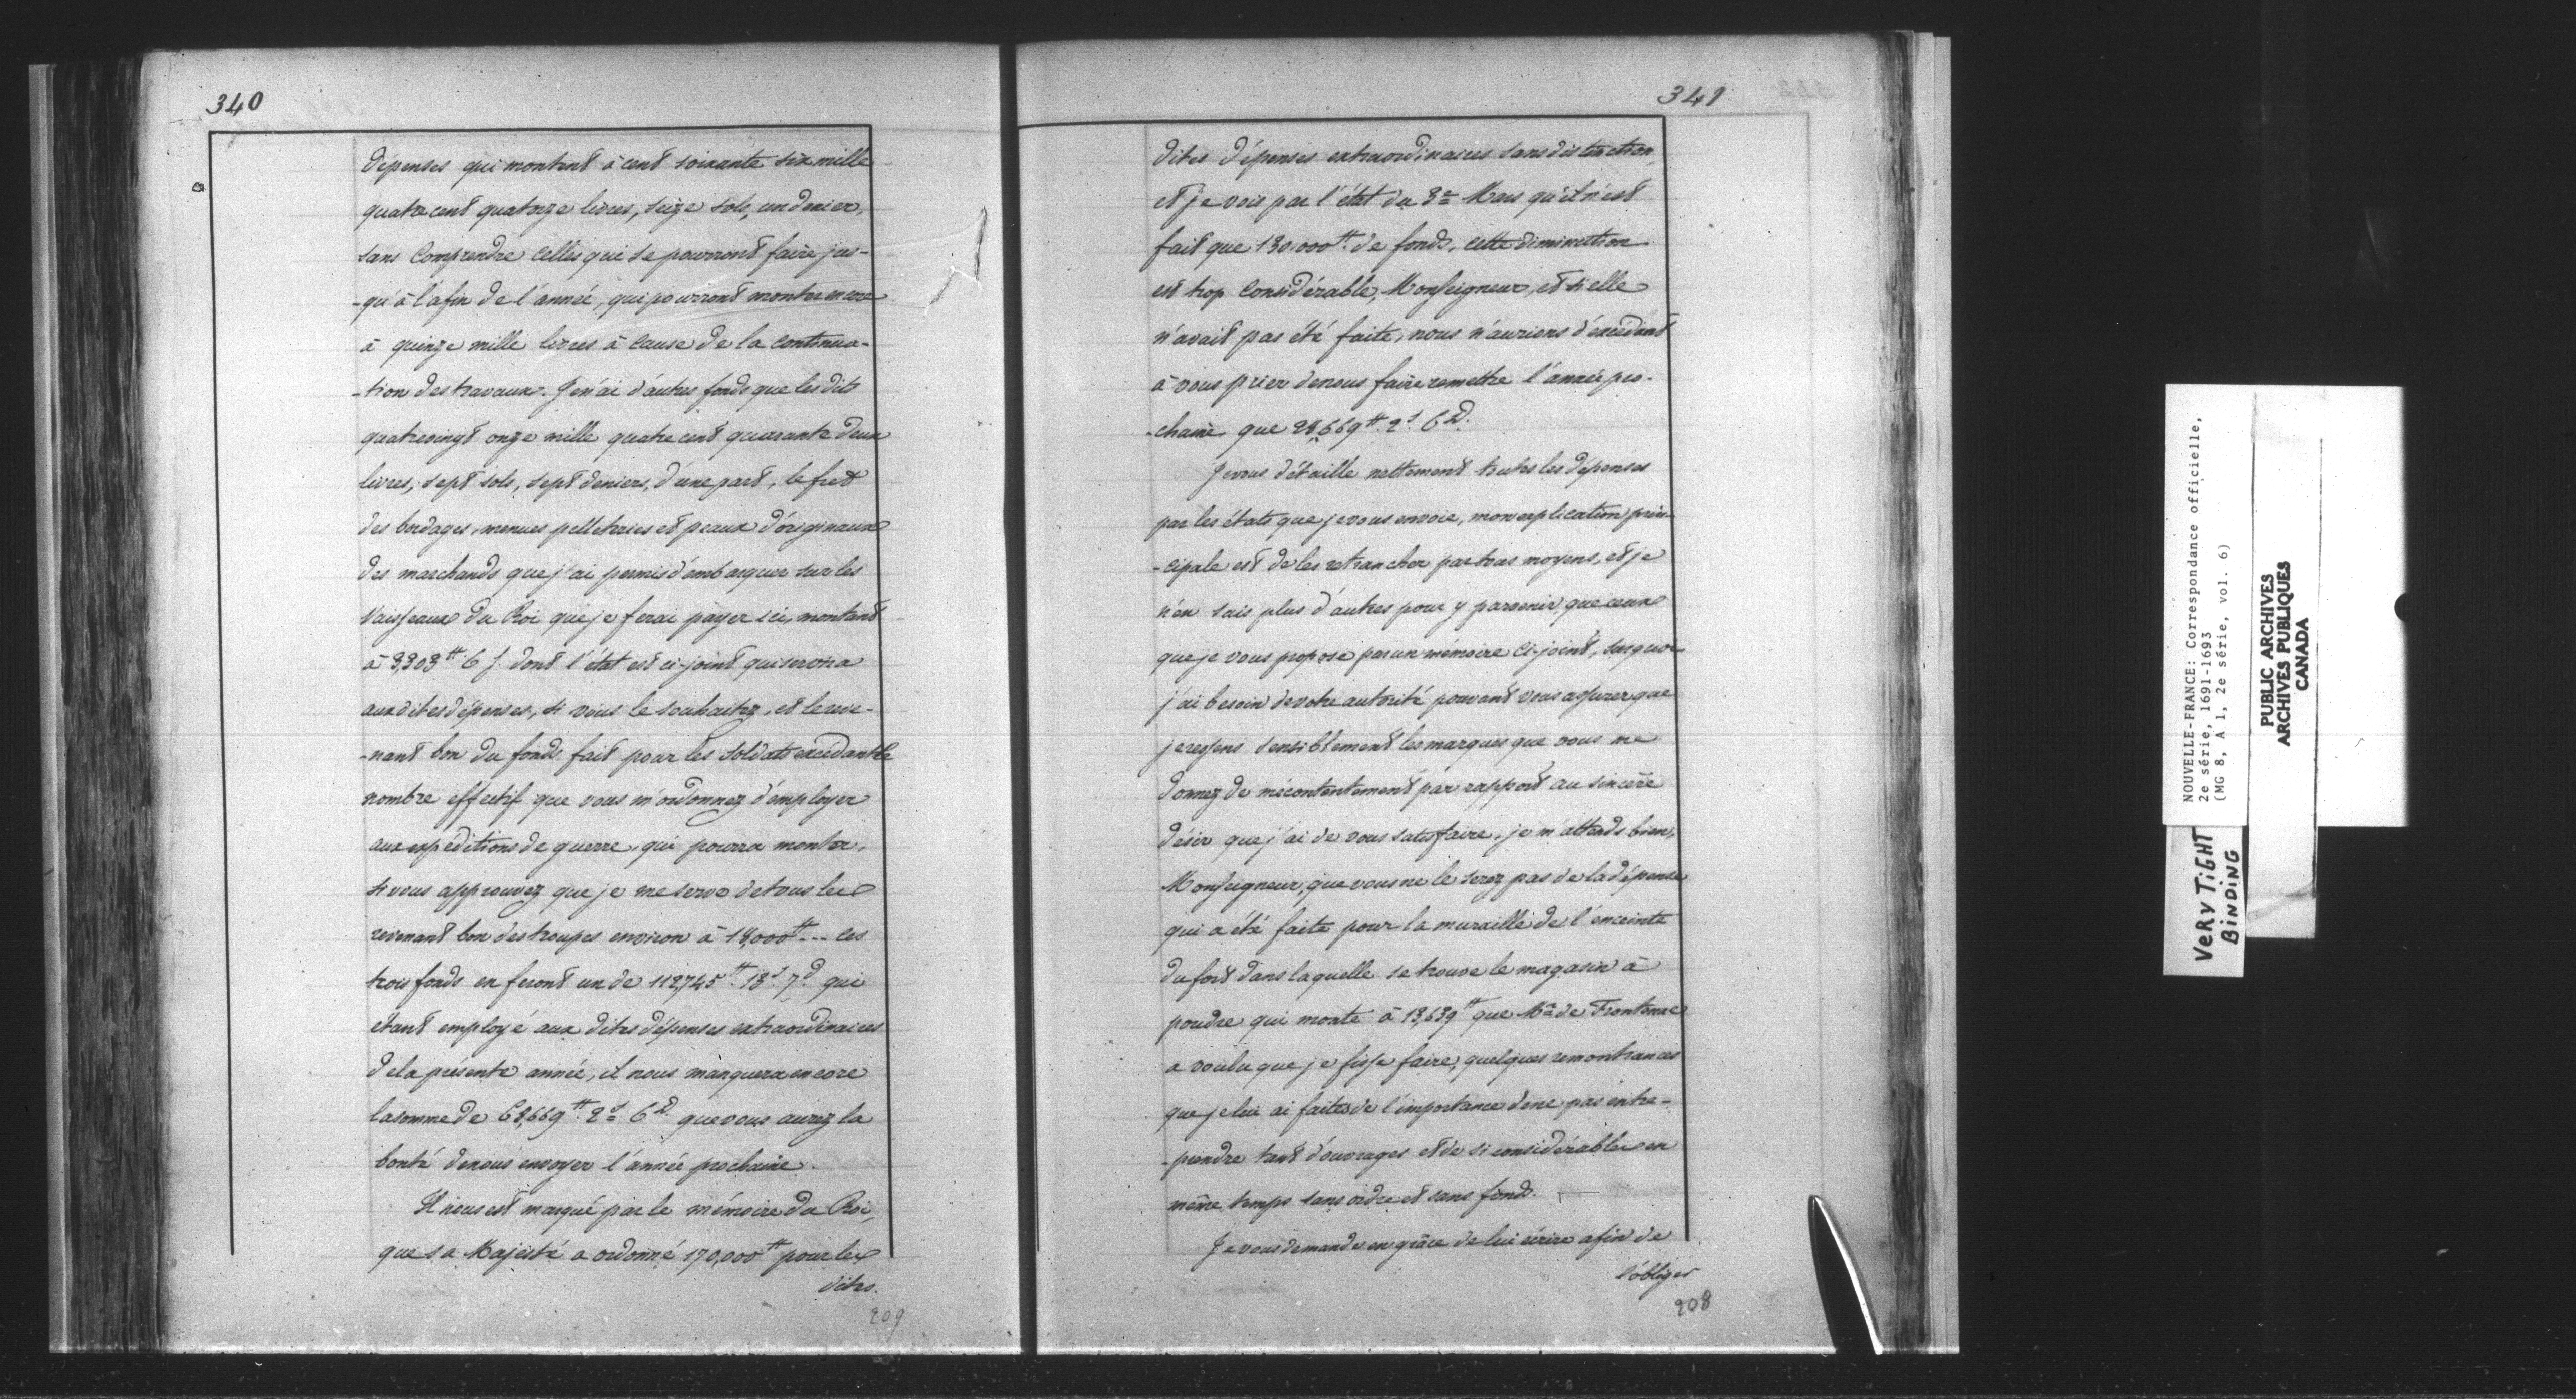 340
dépenses qui montent à cent soixante six mille
quatre cent quatorze livres, seize sols, un denier,
sans Comprendre celles qui se pourront faire jus-
-qu'à la fin de l'année, qui pourront monter encore
à quinze mille livres à Cause de la continua-
-tion des travaux. Je n'ai d'autres fonds que les dits
quatrevingt onze mille quatre cent quarante deux
livres, sept sols, sept deniers, d'une part, le fret
des bordages, menues pelleteries et peaux d'originaux
des marchands que j'ai permis d'embarquer sur les
Vaisseaux du Roi que je ferai payer ici, montant
à 3,303 ᵗᵗ 6 s. dont l'état est ci-joint qui servira
aux dites dépenses, si vous le souhaitez, et le reve-
-nant bon du fonds fait pour les soldats excédant le
nombre effectif que vous m'ordonnez d'employer
aux expéditions de guerre, qui pourra monter,
si vous approuvez que je me serve de tous les
revenant bon des troupes environ à 18,000ᵗᵗ... ces
trois fonds en feront un de 112,745ᵗᵗ. 13ˢ. 7ᵈ. qui
étant employé aux dites dépenses extraordinaires
de la présente année, il nous manquera encore
la somme de 68,669ᵗᵗ. 2ˢ 6ᴰ. que vous aurez la
bonté de nous envoyer l'année prochaine.
Il nous est marqué par le mémoire du Roi,
que sa Majesté a ordonné 170,000ᵗᵗ pour les
dites.
209
341
dites dépenses extraordinaires sans distinction,
et je vois par l'état du 3ᵉ Mars qu'il n'est
fait que 130,000ᵗᵗ. de fonds, cette diminution
est trop Considérable, Monseigneur, et si elle
n'avait pas été faite, nous n'aurions d'excédant
à vous prier de nous faire remettre l'année pro-
-chaine que 28,669ᵗᵗ. 2ˢ. 6ᴰ.
Je vous détaille nettement toutes les dépenses
par les états que je vous envoie, mon explication prin-
-cipale est de les retrancher par tous moyens, et je
n'en sais plus d'autres pour y parvenir, que ceux
que je vous propose par un mémoire Ci-joint, sur quoi
j'ai besoin de votre autorité pouvant vous assurer que
je ressens sensiblement les marques que vous me
donnez de mécontentement par rapport au sincère
désir que j'ai de vous satisfaire. je m'attends bien,
Monseigneur, que vous ne le serez pas de la dépense
qui a été faite pour la muraille de l'enceinte
du fort dans laquelle se trouve le magasin à
poudre qui monte à 13,639ᵗᵗ que Mʳ de Frontenac
a voulu que je fisse faire, quelques remontrances
que je lui ai faites de l'importance de ne pas entre-
-prendre tant d'ouvrages et de si considérables en
même temps sans ordre et sans fonds.
Je vous demande en grâce de lui écrire afin de
l'obliger
208
NOUVELLE-FRANCE: Correspondance officielle,
2e série, 1691-1693
(MG 8, A 1, 2e série, vol. 6)
VERY TIGHT
BINDING
PUBLIC ARCHIVES
ARCHIVES PUBLIQUES
CANADA